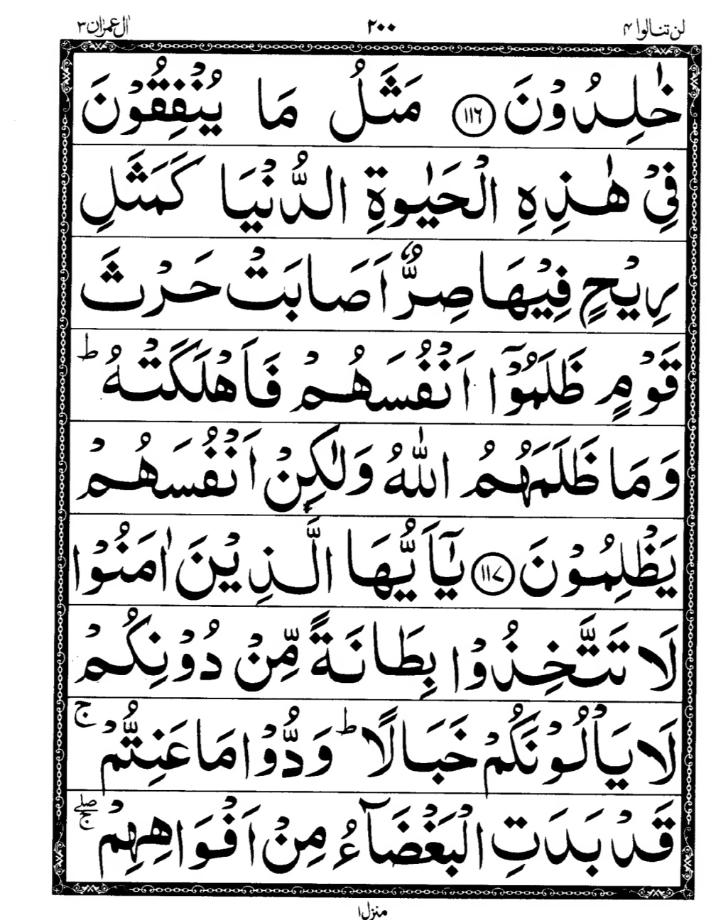 لن تنالوا ۴ ۲۰۰ اٰل عمرٰان ۳
خٰلِدُوْنَ ۝۱۱۶ مَثَلُ مَا یُنْفِقُوْنَ
فِیْ هٰذِهِ الْحَیٰوةِ الدُّنْیَا كَمَثَلِ
رِیْحٍ فِیْهَا صِرٌّ اَصَابَتْ حَرْثَ
قَوْمٍ ظَلَمُوْۤا اَنْفُسَهُمْ فَاَهْلَكَتْهُ ؕ
وَمَا ظَلَمَهُمُ اللّٰهُ وَلٰكِنْ اَنْفُسَهُمْ
یَظْلِمُوْنَ ۝۱۱۷ یٰۤاَیُّهَا الَّذِیْنَ اٰمَنُوْا
لَا تَتَّخِذُوْا بِطَانَةً مِّنْ دُوْنِكُمْ
لَا یَاْلُوْنَكُمْ خَبَالًا ؕ وَدُّوْا مَا عَنِتُّمْ ۚ
قَدْ بَدَتِ الْبَغْضَآءُ مِنْ اَفْوَاهِهِمْ ۖۚ
منزل ۱